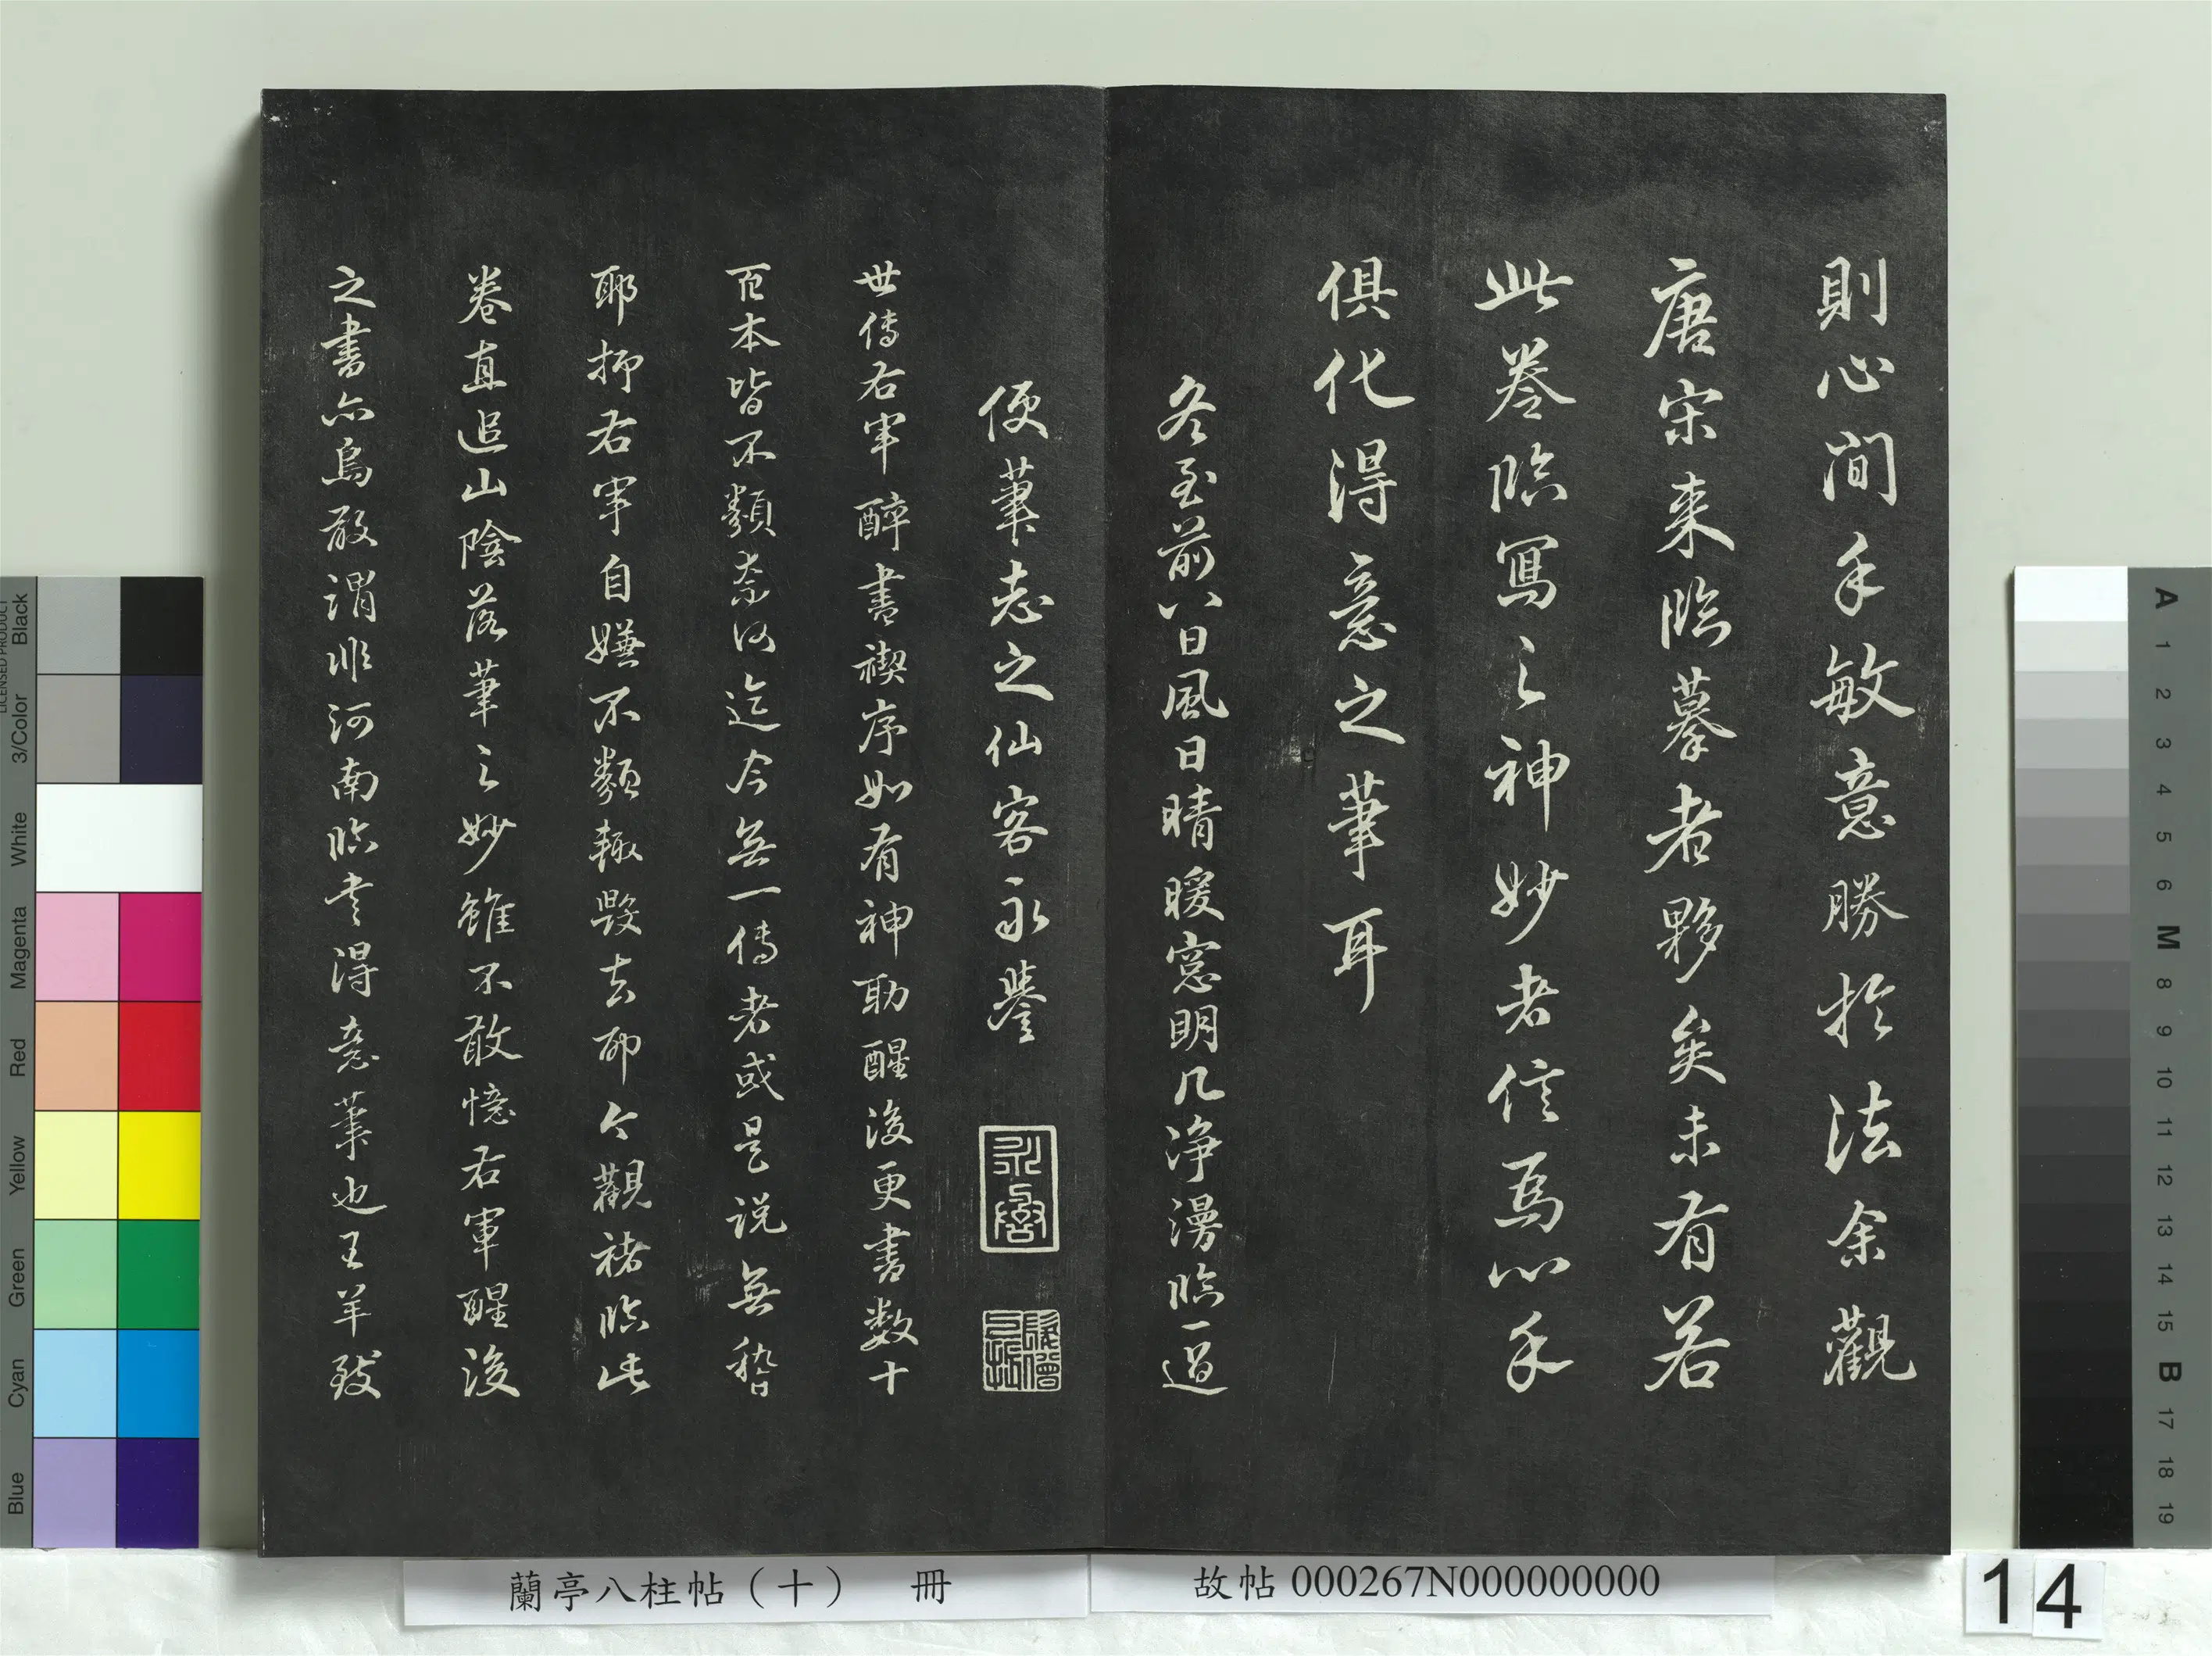 則心閒手敏意勝於法余觀
唐宋來臨摹者夥矣未有若
此卷臨寫之神妙者信焉心手
俱化得意之筆耳
冬至前八日風日晴暖窓明几淨漫臨一過
便筆志之仙客永譽
世傳右軍醉書禊序如有神助醒後更書數十
百本皆不類奈何迄今無一傳者或是說無稽
耶抑右軍自嫌不類輒毀去耶今觀褚臨此
卷直追山陰落筆之妙雖不敢憶右軍醒後
之書亦烏敢謂非河南臨書得意筆也王羊致
蘭亭八柱帖（十） 冊
故帖 000267N000000000
14
Black
3/Color
White
Magenta
Red
Yellow
Green
Cyan
Blue
LICENSED PRODUCT
A
1
2
3
4
5
6
M
8
9
10
11
12
13
14
15
B
17
18
19